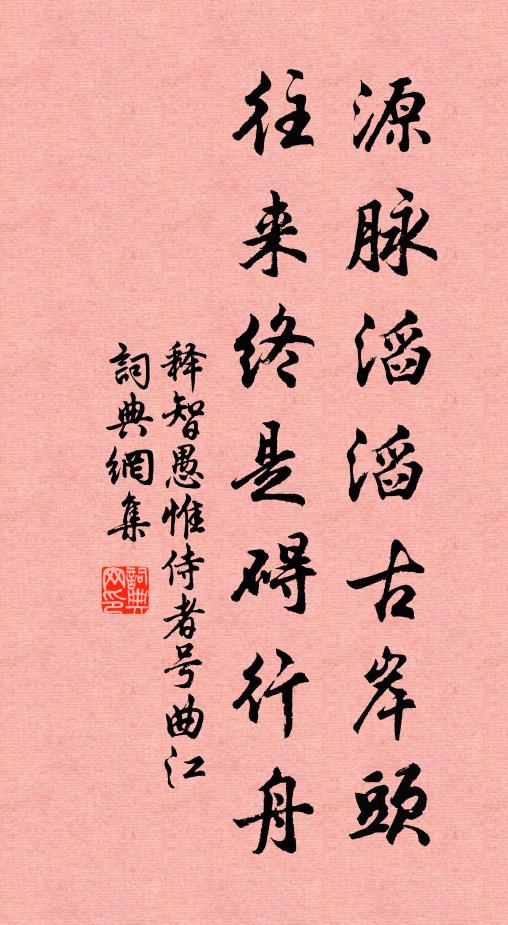 源脉滔滔古岸頭
往来终是碍行舟
释智愚惟侍者号曲江
詞典網集
詞典网印